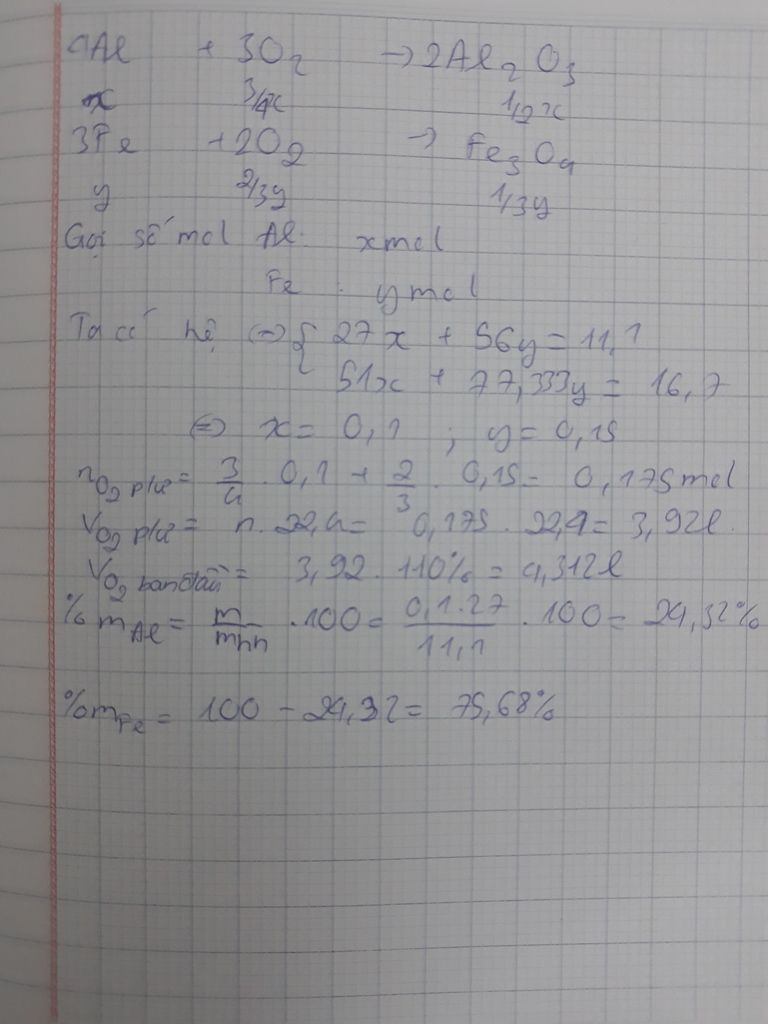 4Al + 3O2 → 2Al2O3
x 3/4x 1/2x
3Fe + 2O2 → Fe3O4
y 2/3y 1/3y
Gọi số mol Al: x mol
Fe: y mol
Ta có hệ (=) { 27x + 56y = 11,1
51x + 77,333y = 16,7
<=> x = 0,1 ; y = 0,15
nO2 pư = 3/4 . 0,1 + 2/3 . 0,15 = 0,175 mol
VO2 pư = n. 22,4 = 0,175 . 22,4 = 3,92l.
VO2 ban đầu = 3,92 . 110% = 4,312l
% mAl = m/mhh . 100 = 0,1.27/11,1 . 100 = 24,32%
%mFe = 100 - 24,32 = 75,68%